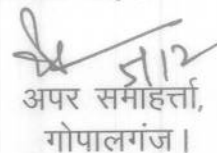 अपर समाहर्त्ता,
गोपालगंज।